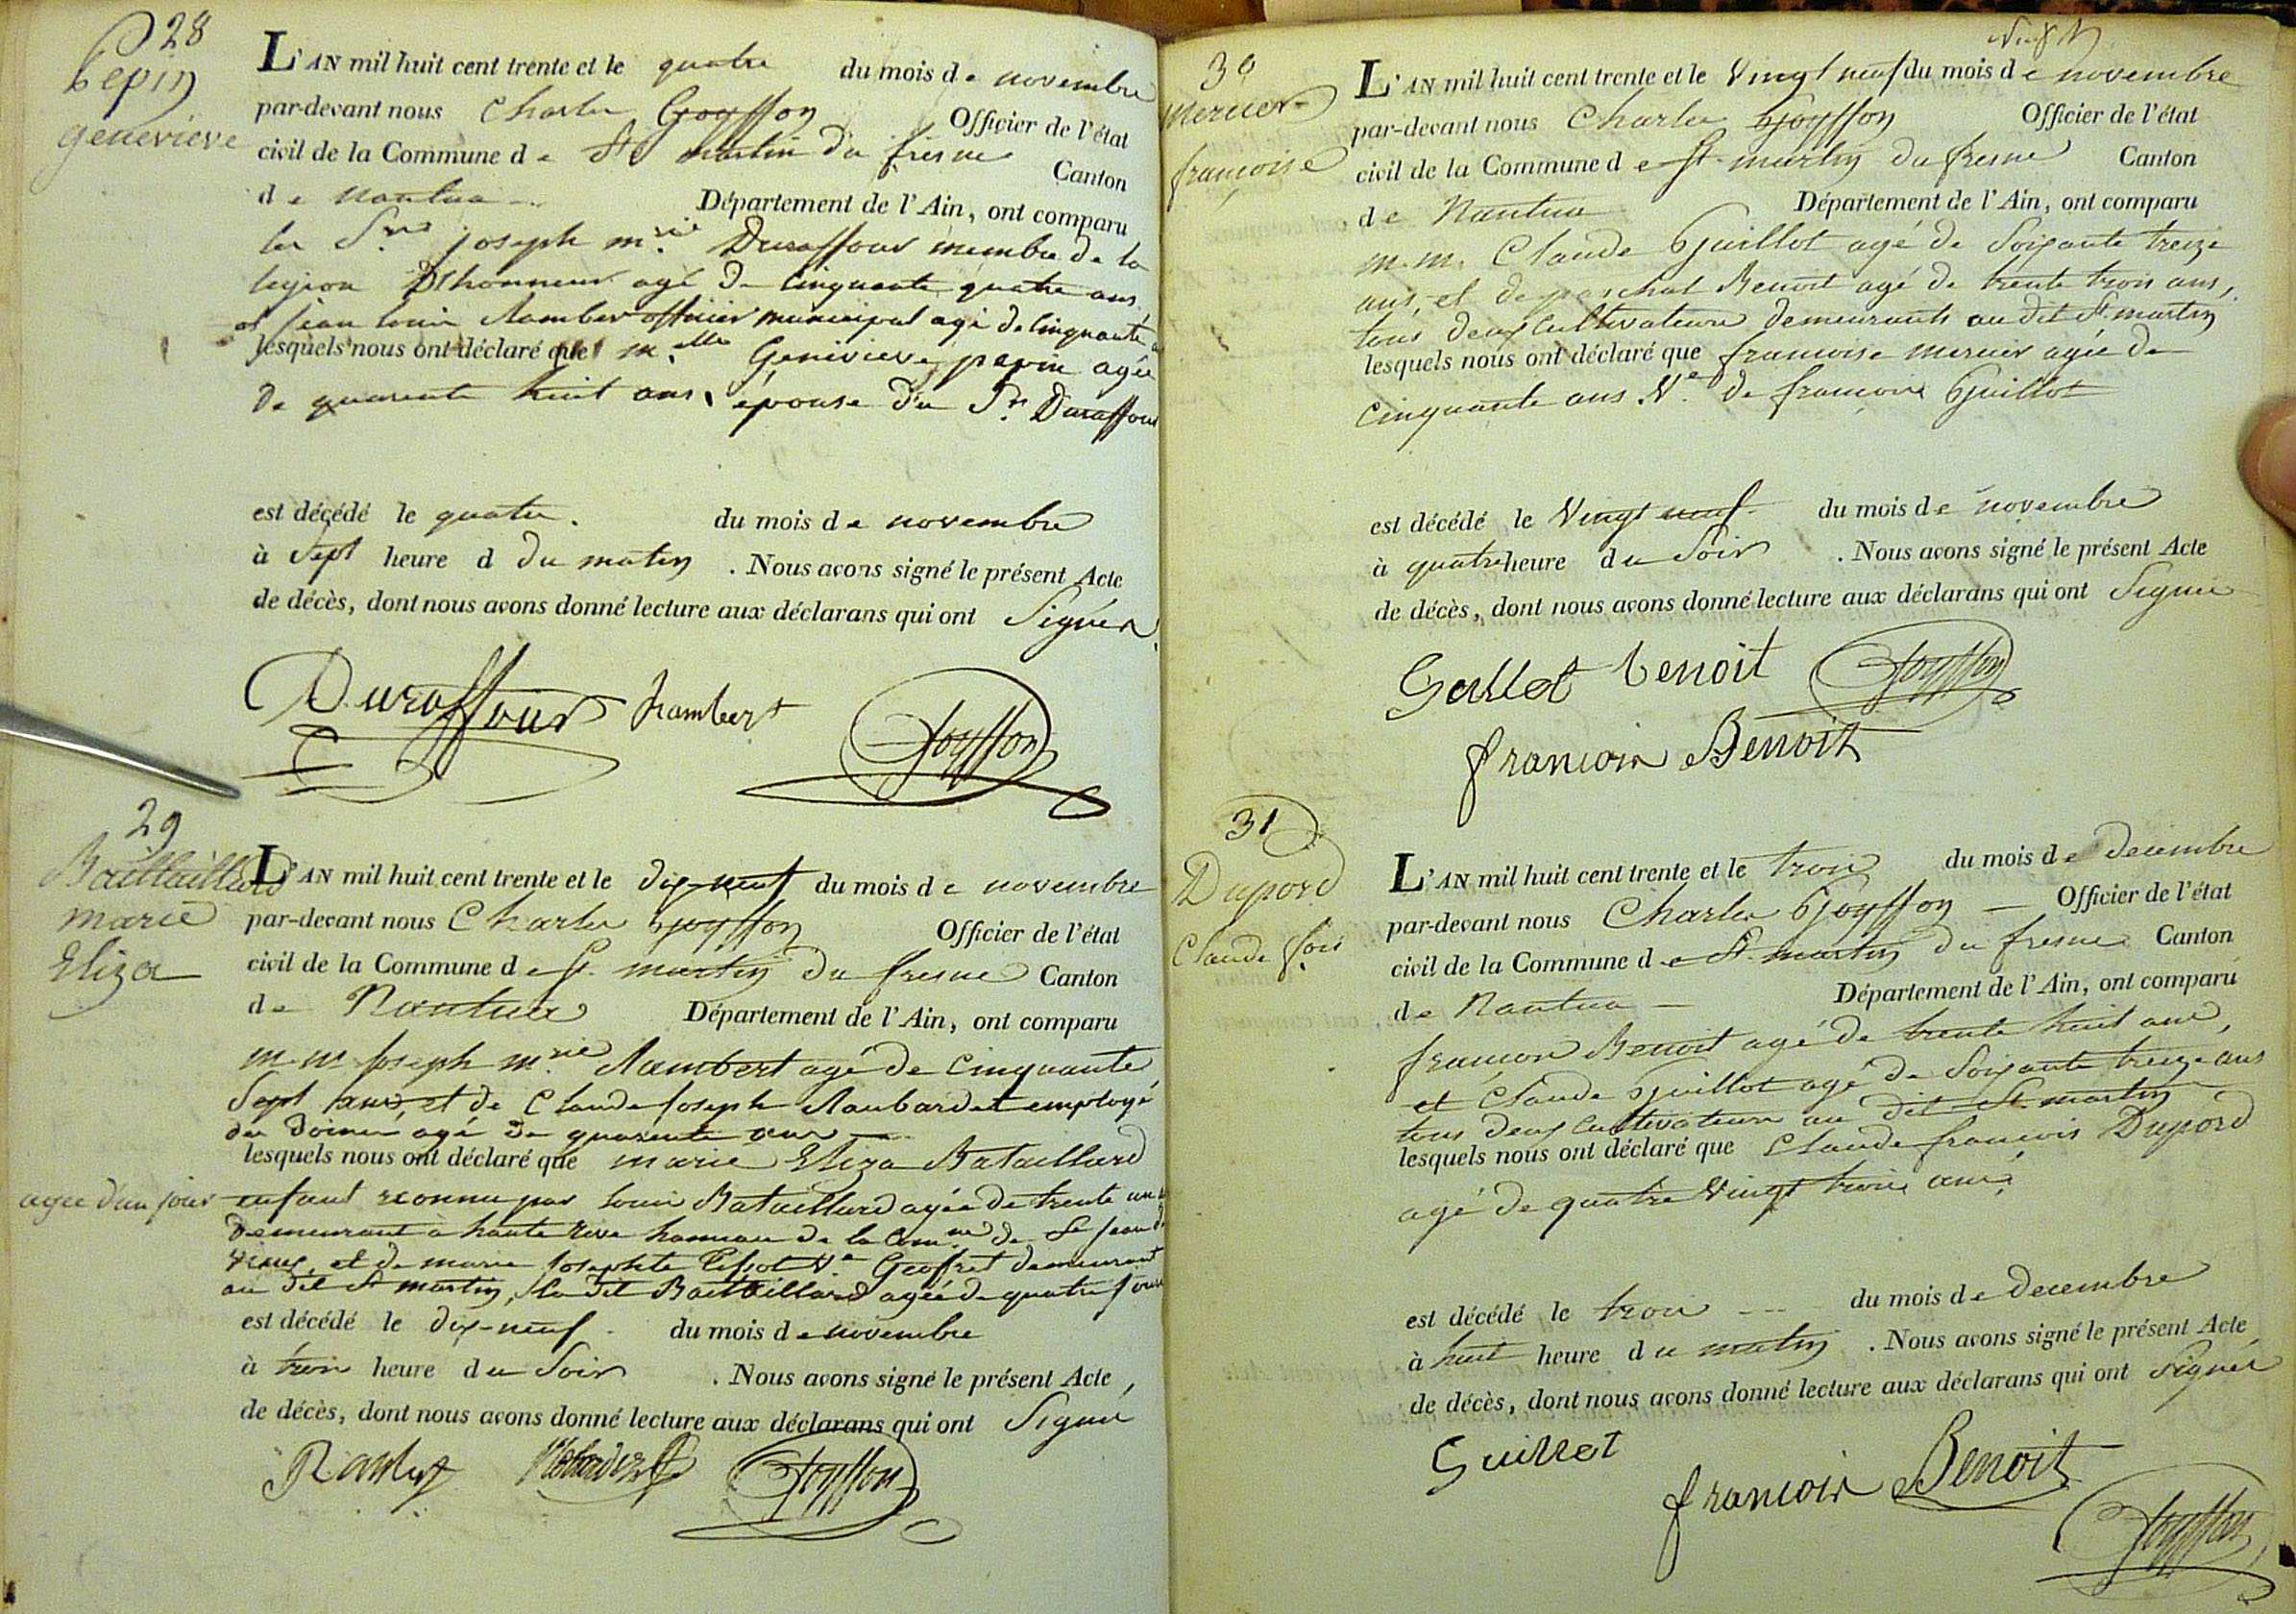 28
pepin
genevieve
L'AN mil huit cent trente et le quatre du mois de novembre
par-devant nous Charles Goyffon Officier de l'état
civil de la Commune de St martin du fresne Canton
de nantua Département de l'Ain, ont comparu
les Srs joseph mrie Duraffour membre de la
legion D'honneur agé de cinquante quatre ans,
et jean louis Rambert officier municipal agé de cinquante
lesquels nous ont déclaré que melle Genevieve pepin agée
de quarente huit ans, épouse du Sr Duraffour
est décédé le quatre. du mois de novembre
à Sept heure d du matin . Nous avons signé le présent Acte
de décès, dont nous avons donné lecture aux déclarans qui ont Signér
Duraffour Rambert Goyffon
29
Baittaillard
marie
Eliza
L'AN mil huit cent trente et le dix-neuf du mois de novembre
par-devant nous Charles Goyffon Officier de l'état
civil de la Commune de St. martin du fresne Canton
de Nantua Département de l'Ain, ont comparu
m.m joseph m.rie Rambert agé de cinquante
Sept ans, et de Claude joseph Roubardet employé
agé de quarente ans
lesquels nous ont déclaré que marie Eliza Bataillard
agee d'un jour enfant reconnu par louis Bataillard agée de trente un
Demeurant à haute rive hameau de la Com.ne de St jean de
vieux, et de marie josephte Ve Geofret demeurant
au dit St martin, la dit Battaillard agée de quatre jours
est décédé le dix-neuf. du mois de novembre
à trois heure du Soir . Nous avons signé le présent Acte
de décès, dont nous avons donné lecture aux déclarans qui ont Signé
Rambert Goyffon
30
mercier
françoise
L'AN mil huit cent trente et le Vingt neuf du mois de novembre
par-devant nous Charles Goyffon Officier de l'état
civil de la Commune de St martin du fresne Canton
de Nantua Département de l'Ain, ont comparu
m.m. Claude Guillot agé de Soixante treize
ans, et de paschal Benoit agé de trente trois ans,
tous deux cultivateurs demeurants au dit St martin
lesquels nous ont déclaré que francoise mercier agée de
cinquante ans Ve de françois Guillot
est décédé le Vingt neuf. du mois de novembre
à quatre heure du Soir . Nous avons signé le présent Acte
de décès, dont nous avons donné lecture aux déclarans qui ont Signé
Guillot benoit Goyffon
francoir Benoit
31
Dupord
Claude fçois
L'AN mil huit cent trente et le trois du mois de decembre
par-devant nous Charles Goyffon Officier de l'état
civil de la Commune de St martin du fresne Canton
de Nantua Département de l'Ain, ont comparu
françois Benoit agé de trente huit ans,
et Claude Guillot agé de Soixante treize ans
tous deux cultivateurs au dit St martin
lesquels nous ont déclaré que Claude francois Dupord
agé de quatre Vingt trois ans,
est décédé le trois du mois de Decembre
à huit heure du matin . Nous avons signé le présent Acte
de décès, dont nous avons donné lecture aux déclarans qui ont Signér
Guillot
francoir Benoit
Goyffon